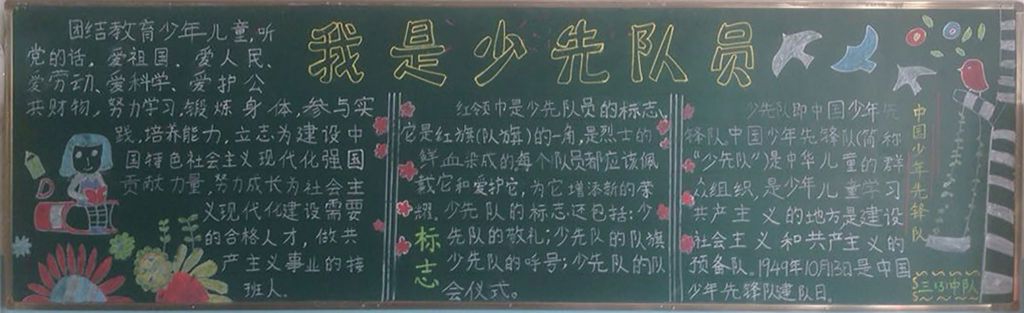 我是少先队员
团结教育少年儿童,听
党的话,爱祖国、爱人民、
爱劳动、爱科学、爱护公
共财物,努力学习,锻炼身体,参与实
践,培养能力,立志为建设中
国特色社会主义现代化强国
贡献力量,努力成长为社会主
义现代化建设需要
的合格人才,做共
产主义事业的接
班人。
红领巾是少先队员的标志,
它是红旗(队旗)的一角,是烈士的
鲜血染成的。每个队员都应该佩
戴它和爱护它,为它增添新的荣
耀。少先队的标志还包括:少
先队的敬礼;少先队的队旗
少先队的呼号;少先队的队
会仪式。
标志
少先队即中国少年先
锋队,中国少年先锋队(简称
“少先队”)是中华儿童的群
众组织,是少年儿童学习
共产主义的地方是建设
社会主义和共产主义的
预备队。1949年10月13日是中国
少年先锋队建队日。
中国少年先锋队
三(3)中队